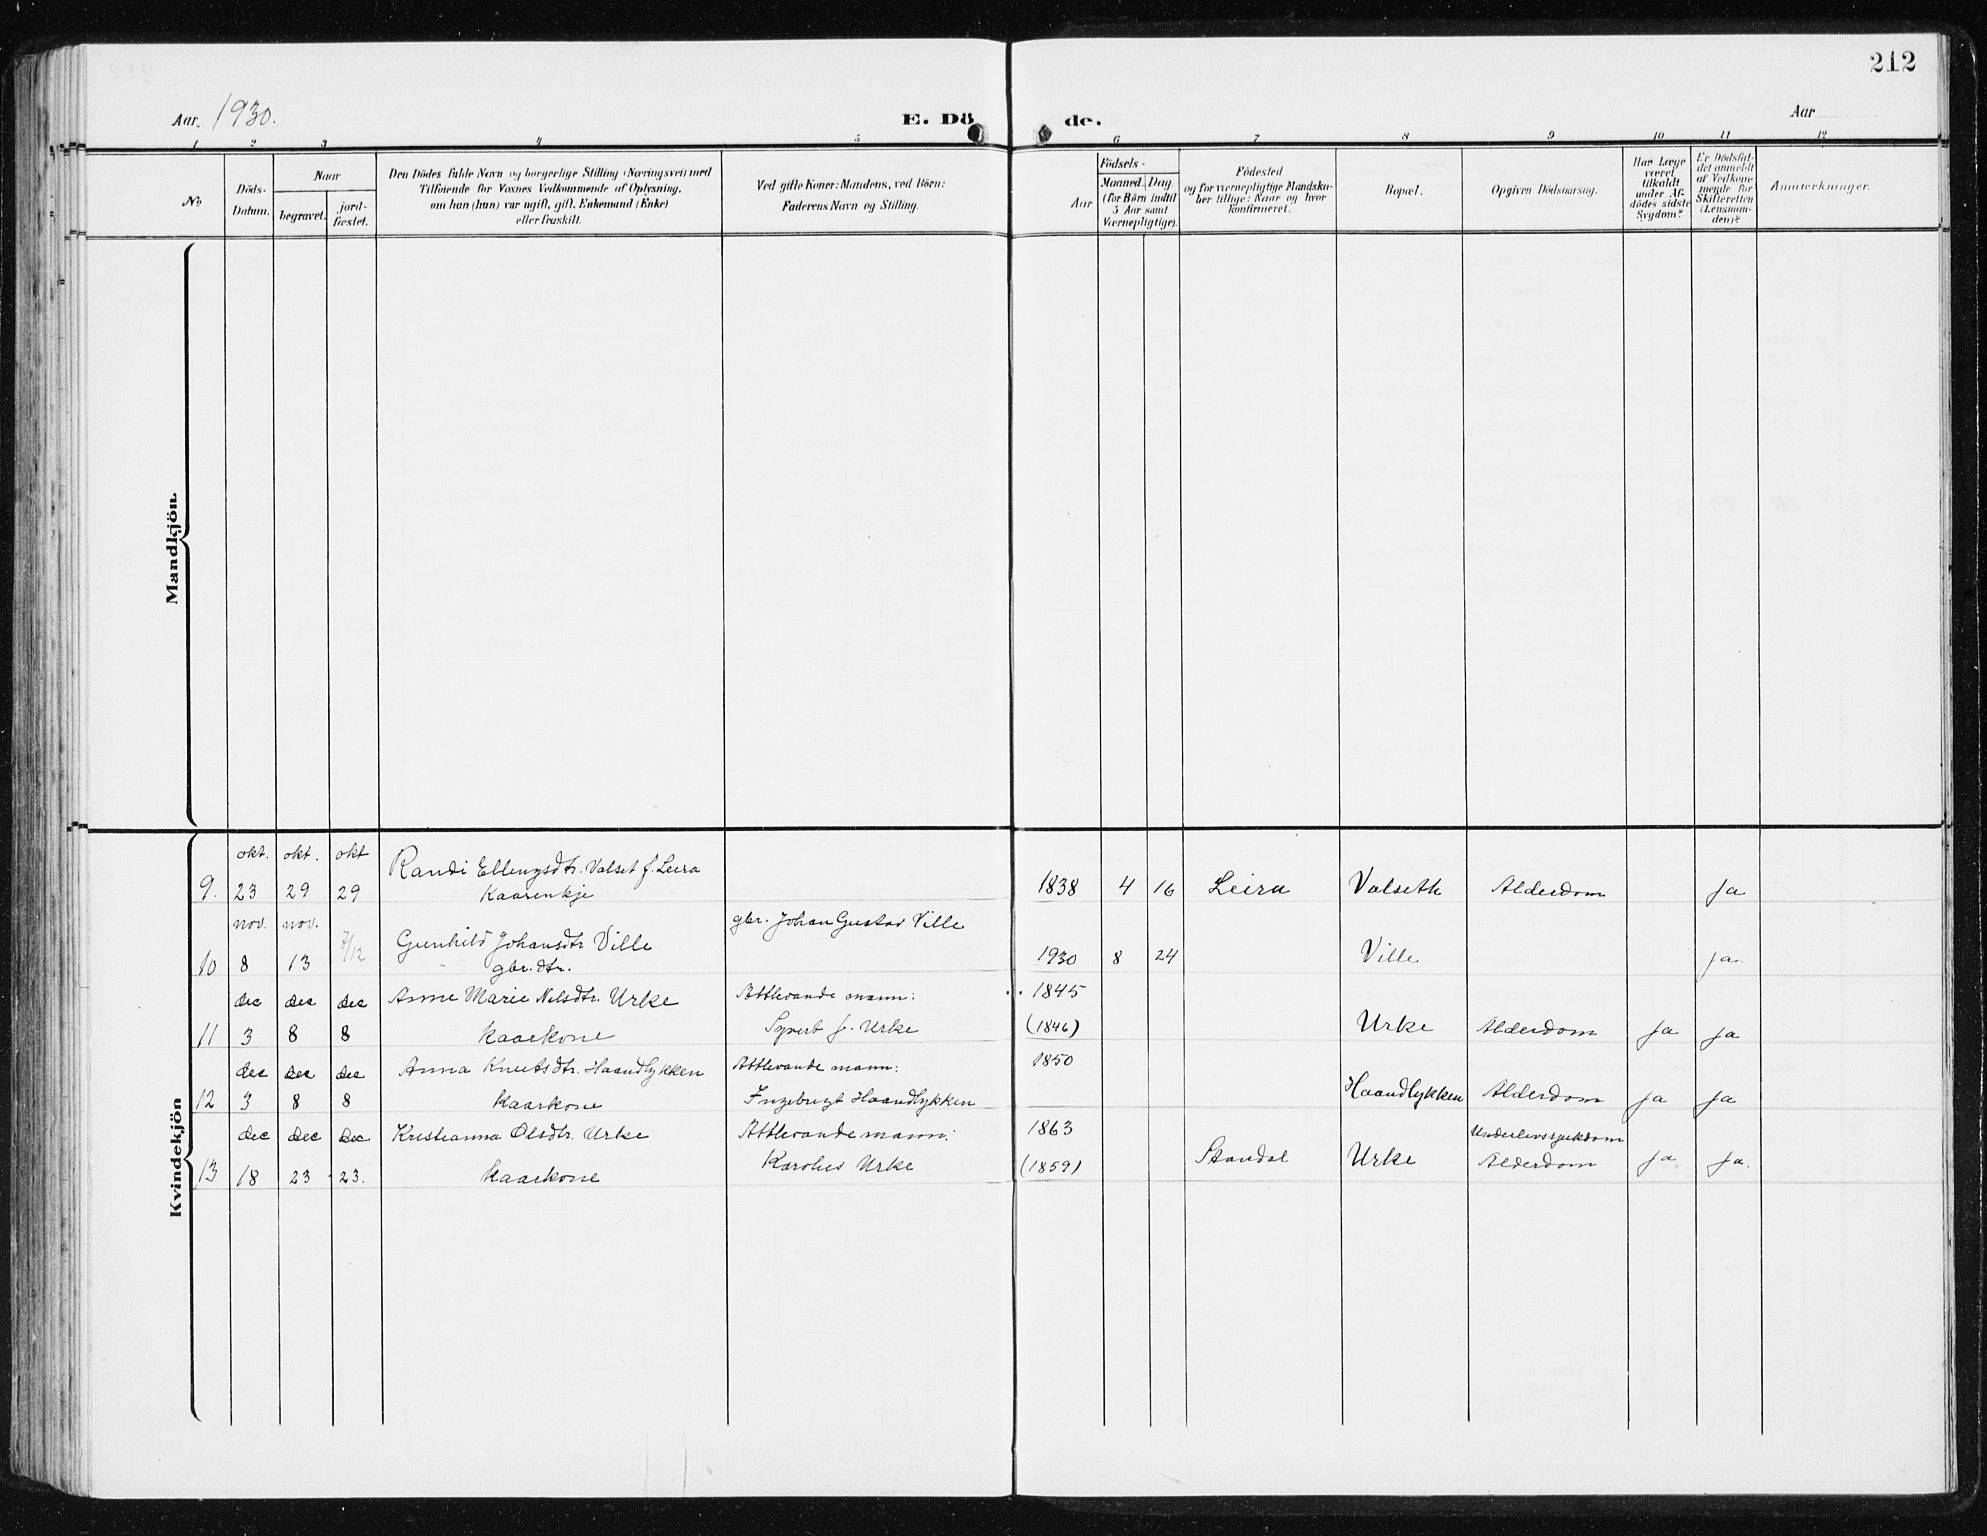 212
Aar 1930.
E. Döde.
Aar
1 2 3 4 5 6 7 8 9 10 11 12
No
Döds-Datum.
Naar
begravet.
jord-fæstet.
Den Dödes fulde Navn og borgerlige Stilling (Næringsvei) med
Tilföiende for Voxnes Vedkommende af Oplysning,
om han (hun) var ugift, gift, Enkemand (Enke)
eller fraskilt.
Ved gifte Koner: Mandens, ved Börn:
Faderens Navn og Stilling.
Födsels-
Aar
Maaned. Dag.
(for Börn indtil
5 Aar samt
Værnepligtige).
Födested
og for værnepligtige Mandska-
ber tillige: Naar og hvor
konfirmeret.
Bopæl.
Opgiven Dödsaarsag.
Har Læge
været
tilkaldt
under Af-
dödes sidste
Sygdom?
Er Dödsfal-
det anmeldt
af Vedkom-
mende for
Skifteretten
(Lensman-
den)?
Anmærkninger.
Mandkjön.
Kvindekjön
okt. okt. okt Randi Ellingsdtr. Valset f. Leira
9. 23 29 29 Kaarenkje 1838 4 16 Leira Valseth Alderdom ja
nov. nov. gbr. Johan Gustav Ville
10 8 13 7/12 Gunhild Johansdtr Ville 1930 8 24 Ville ja.
gbr. dtr.
dec dec dec Anne Marie Nilsdtr. Urke Attlevande mann: 1845
11 3 8 8 kaarkone Syvert J. Urke (1846) Urke Alderdom ja ja
dec dec dec Anna Knutsdtr. Haandlykken Attlevande mann: 1850
12 3 8 8 kaarkone Ingebrigt Haandlykken Haandlykken Alderdom ja ja
dec dec dec Kristianna Olsdtr. Urke Attlevande mann: 1863 Underlivssjukdom
13 18 23 23. kaarkone Karolus Urke (1859) Standal Urke Alderdom ja ja.